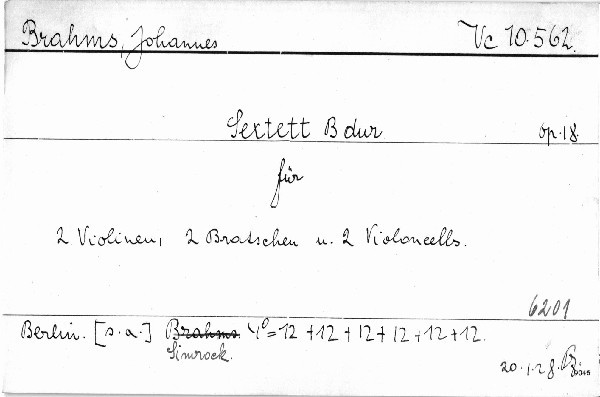 Brahms, Johannes Vc 10.562.
Sextett B dur op.18.
für
2 Violinen, 2 Bratschen u. 2 Violoncells.
6201
Berlin. [s.a.] Brahms 4º=12+12+12+12+12+12.
Simrock.
20.1.28.